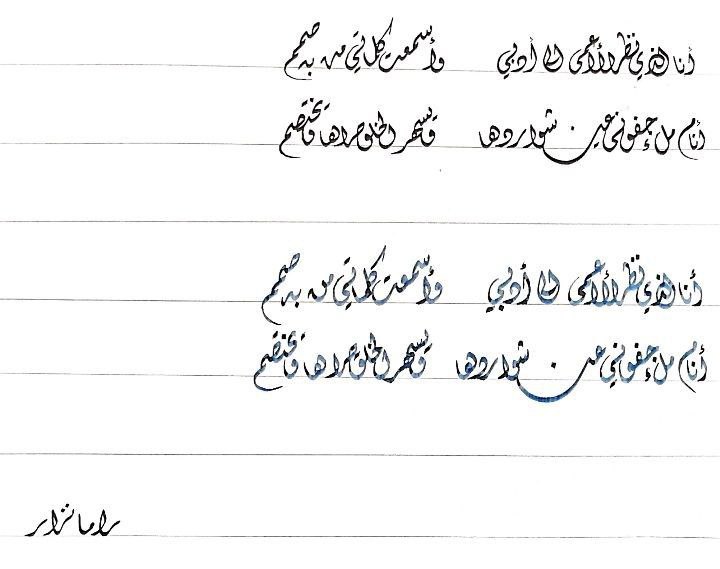 أنا الذي نظر الأعمى إلى أدبي وأسمعت كلماتي من به صمم
أنام ملء جفوني عن شواردها ويسهر الخلق جراها ويختصم
أنا الذي نظر الأعمى إلى أدبي وأسمعت كلماتي من به صمم
أنام ملء جفوني عن شواردها ويسهر الخلق جراها ويختصم
راما نزار